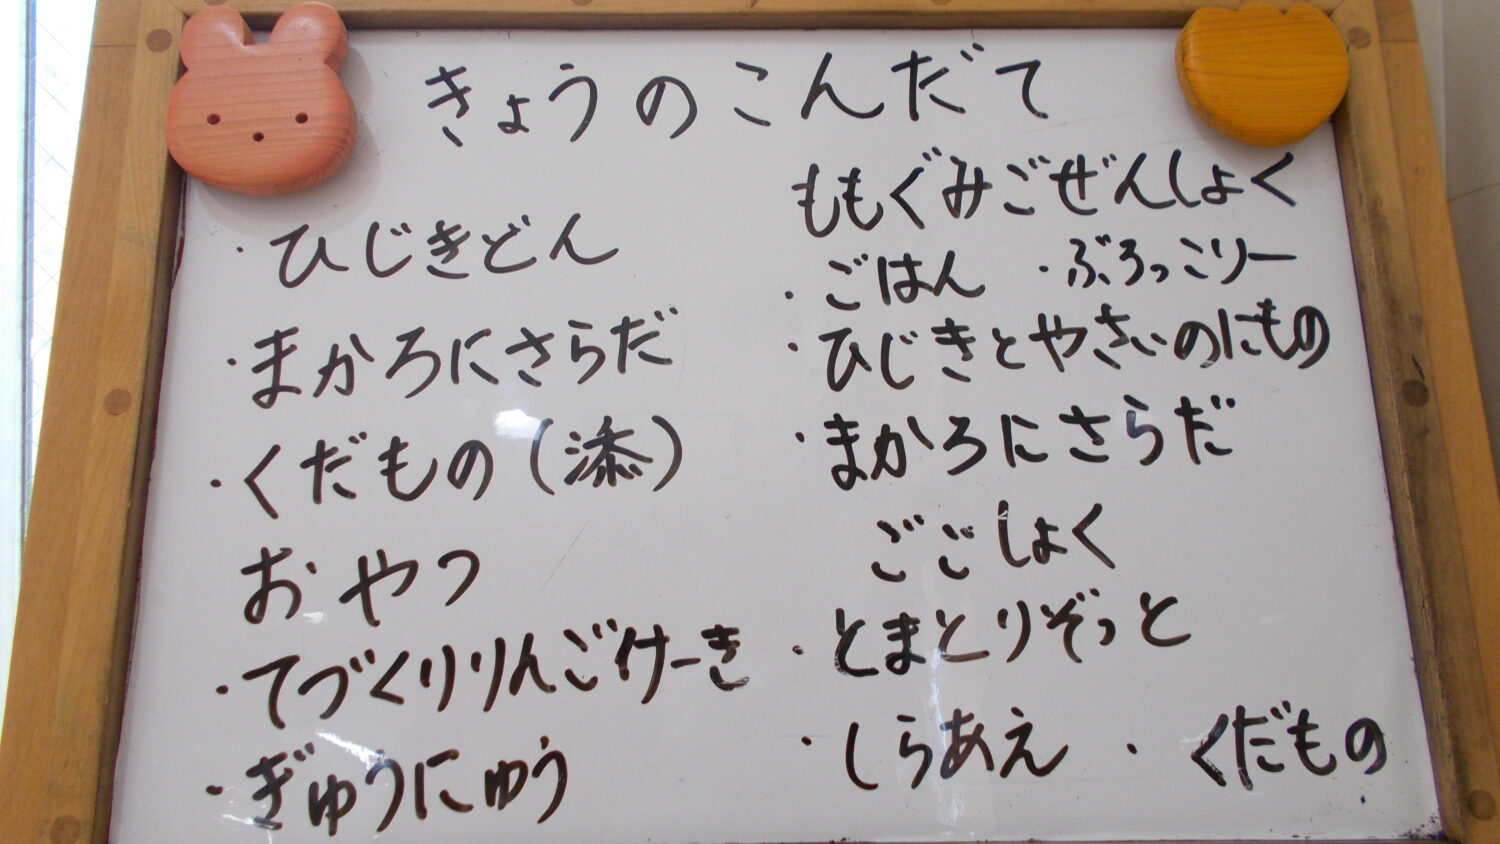 きょうのこんだて
・ひじきどん
・まかろにさらだ
・くだもの(添)
おやつ
・てづくりりんごけーき
・ぎゅうにゅう
ももぐみごぜんしょく
・ごはん ・ぶろっこりー
・ひじきとやさいのにもの
・まかろにさらだ
ごごしょく
・とまとりぞっと
・しらあえ ・くだもの